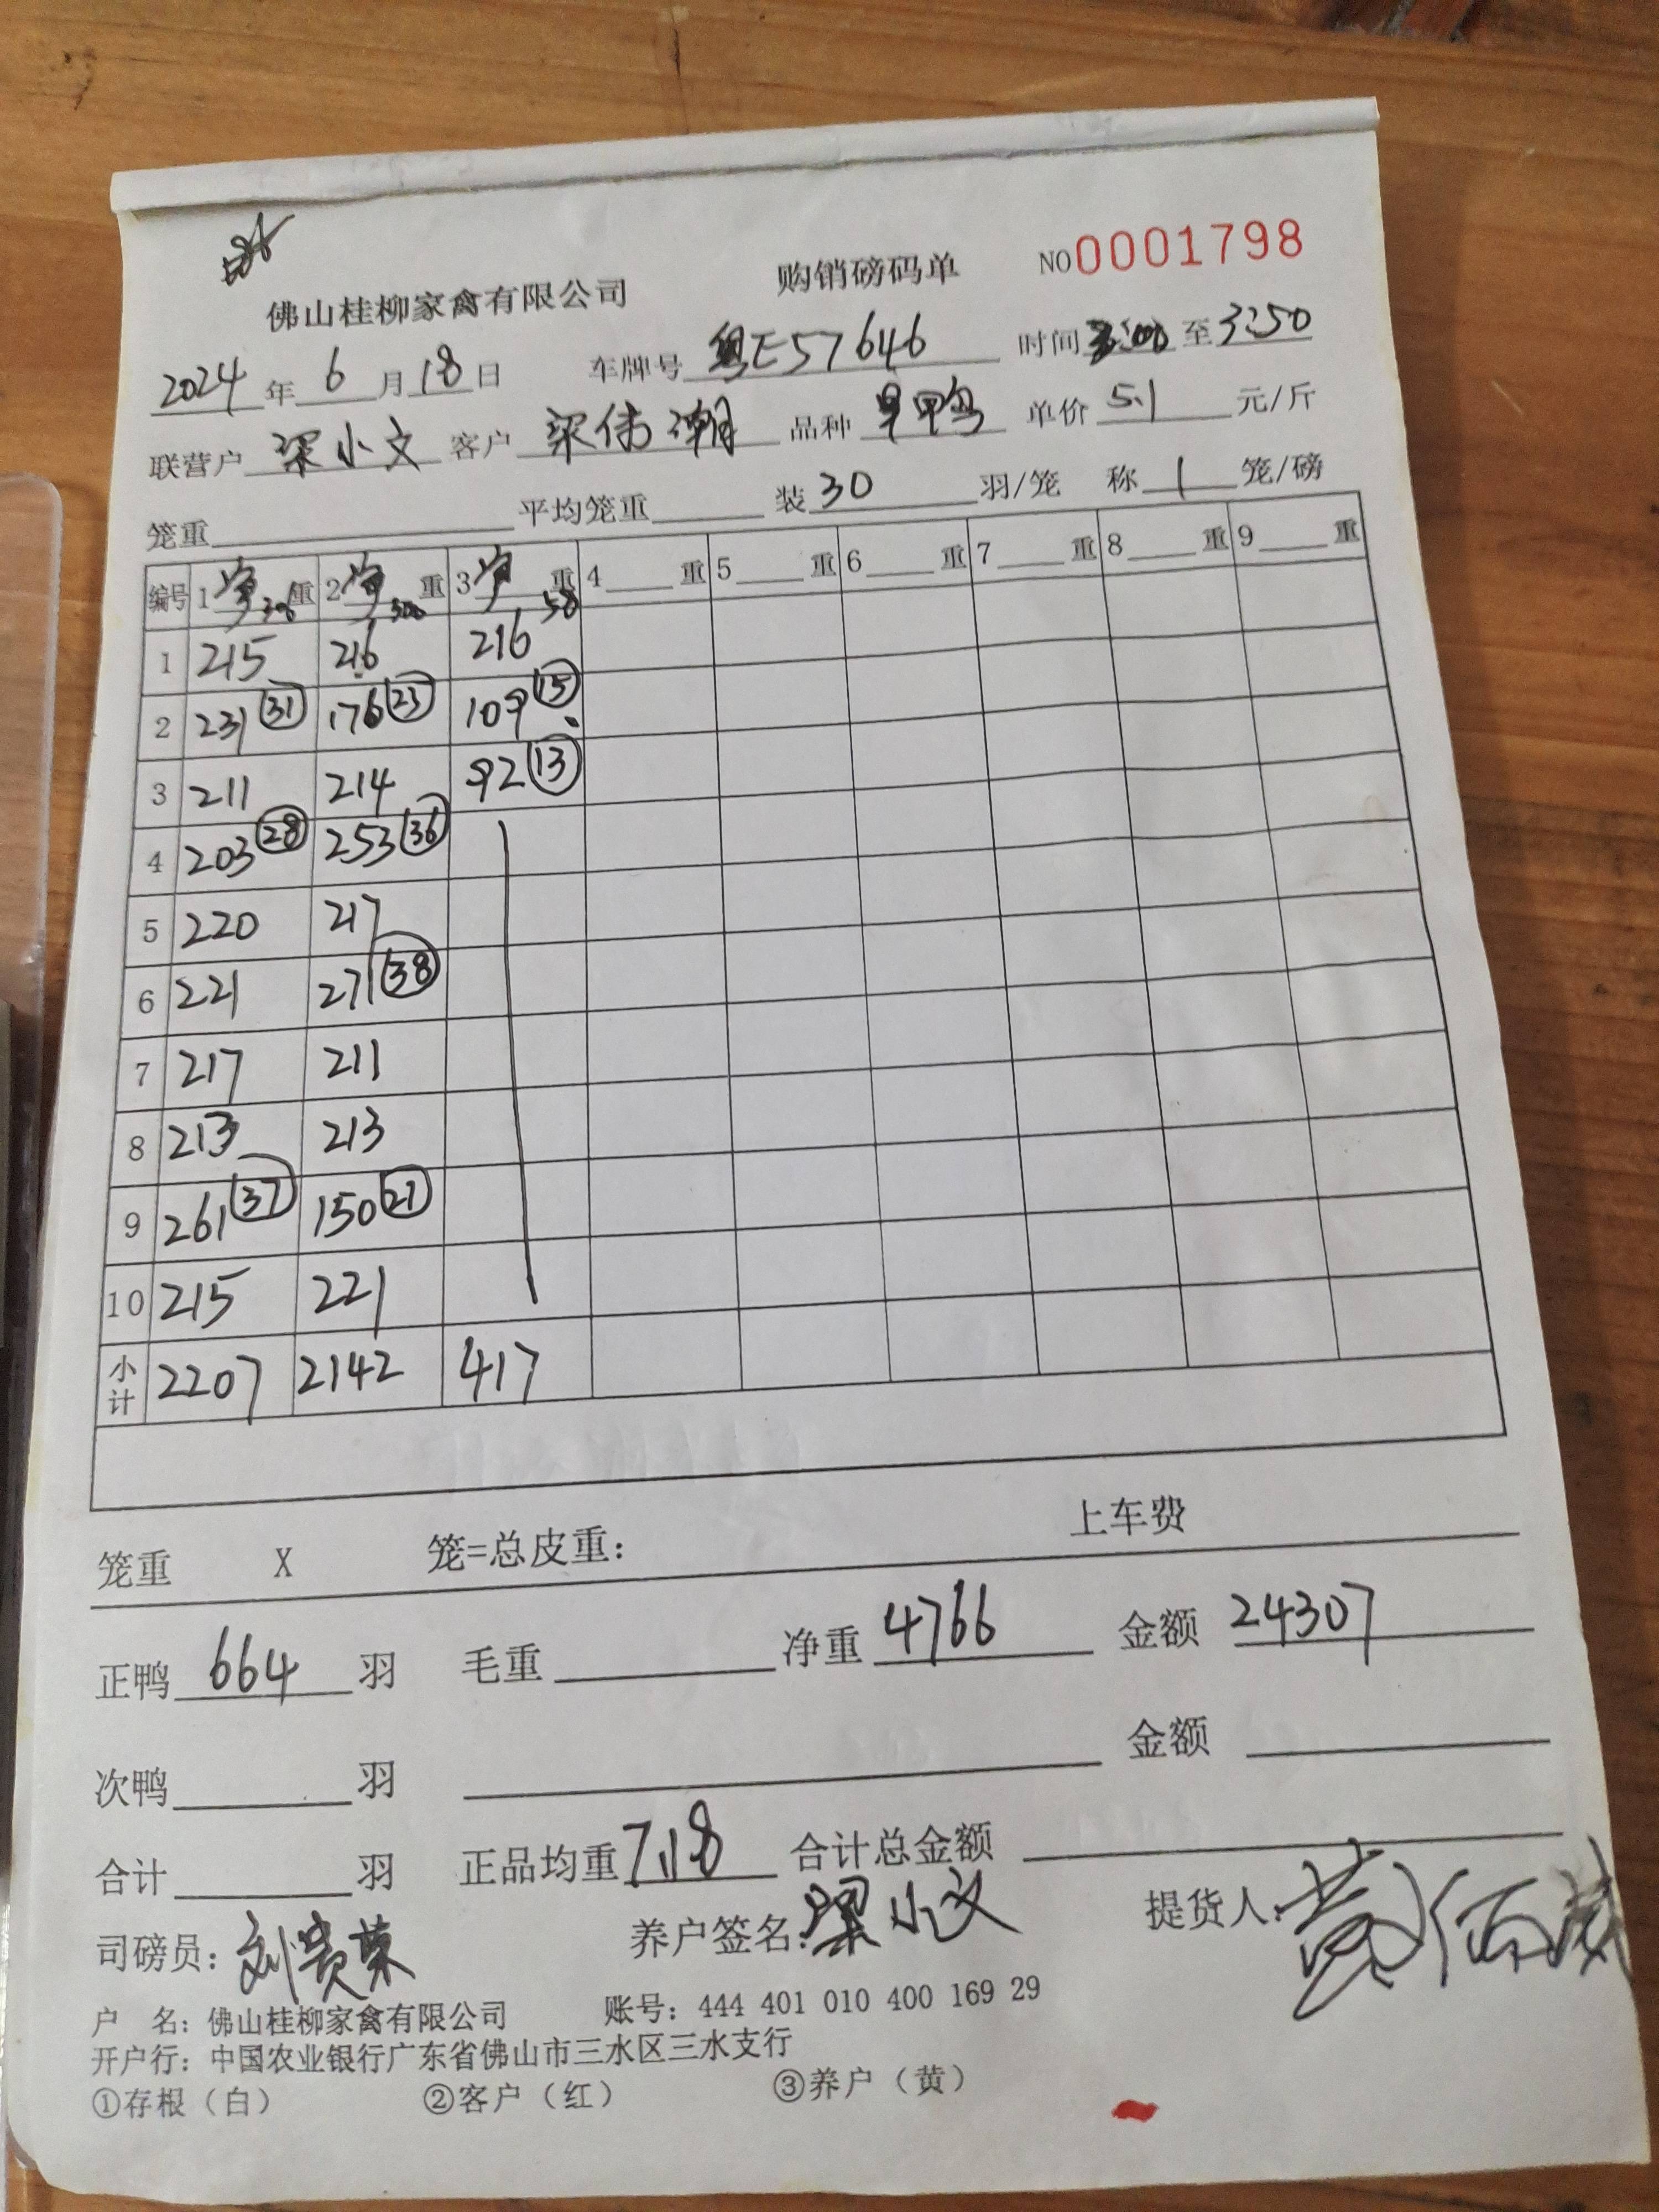 佛山桂柳家禽有限公司 购销磅码单 NO0001798
2024年6月18日 车牌号 粤E57646 时间3:00至3:50
联营户 梁小文 客户 梁伟潮 品种 旱鸭 单价 5.1 元/斤
笼重 平均笼重 装30 羽/笼 称 1 笼/磅
编号 1 净 300 重 2 净 306 重 3 净 58 重 4 重 5 重 6 重 7 重 8 重 9 重
1 215 216 216
2 231 (31) 176 (25) 109 (15)
3 211 214 92 (13)
4 203 (28) 253 (36)
5 220 217
6 221 271 (38)
7 217 211
8 213 213
9 261 (37) 150 (21)
10 215 221
小计 2207 2142 417
笼重 X 笼=总皮重： 上车费
正鸭 664 羽 毛重 净重 4766 金额 24307
次鸭 羽 金额
合计 羽 正品均重 7.18 合计总金额
司磅员：刘贵荣 养户签名：梁小文 提货人：黄
户 名：佛山桂柳家禽有限公司 账号：444 401 010 400 169 29
开户行：中国农业银行广东省佛山市三水区三水支行
①存根（白） ②客户（红） ③养户（黄）